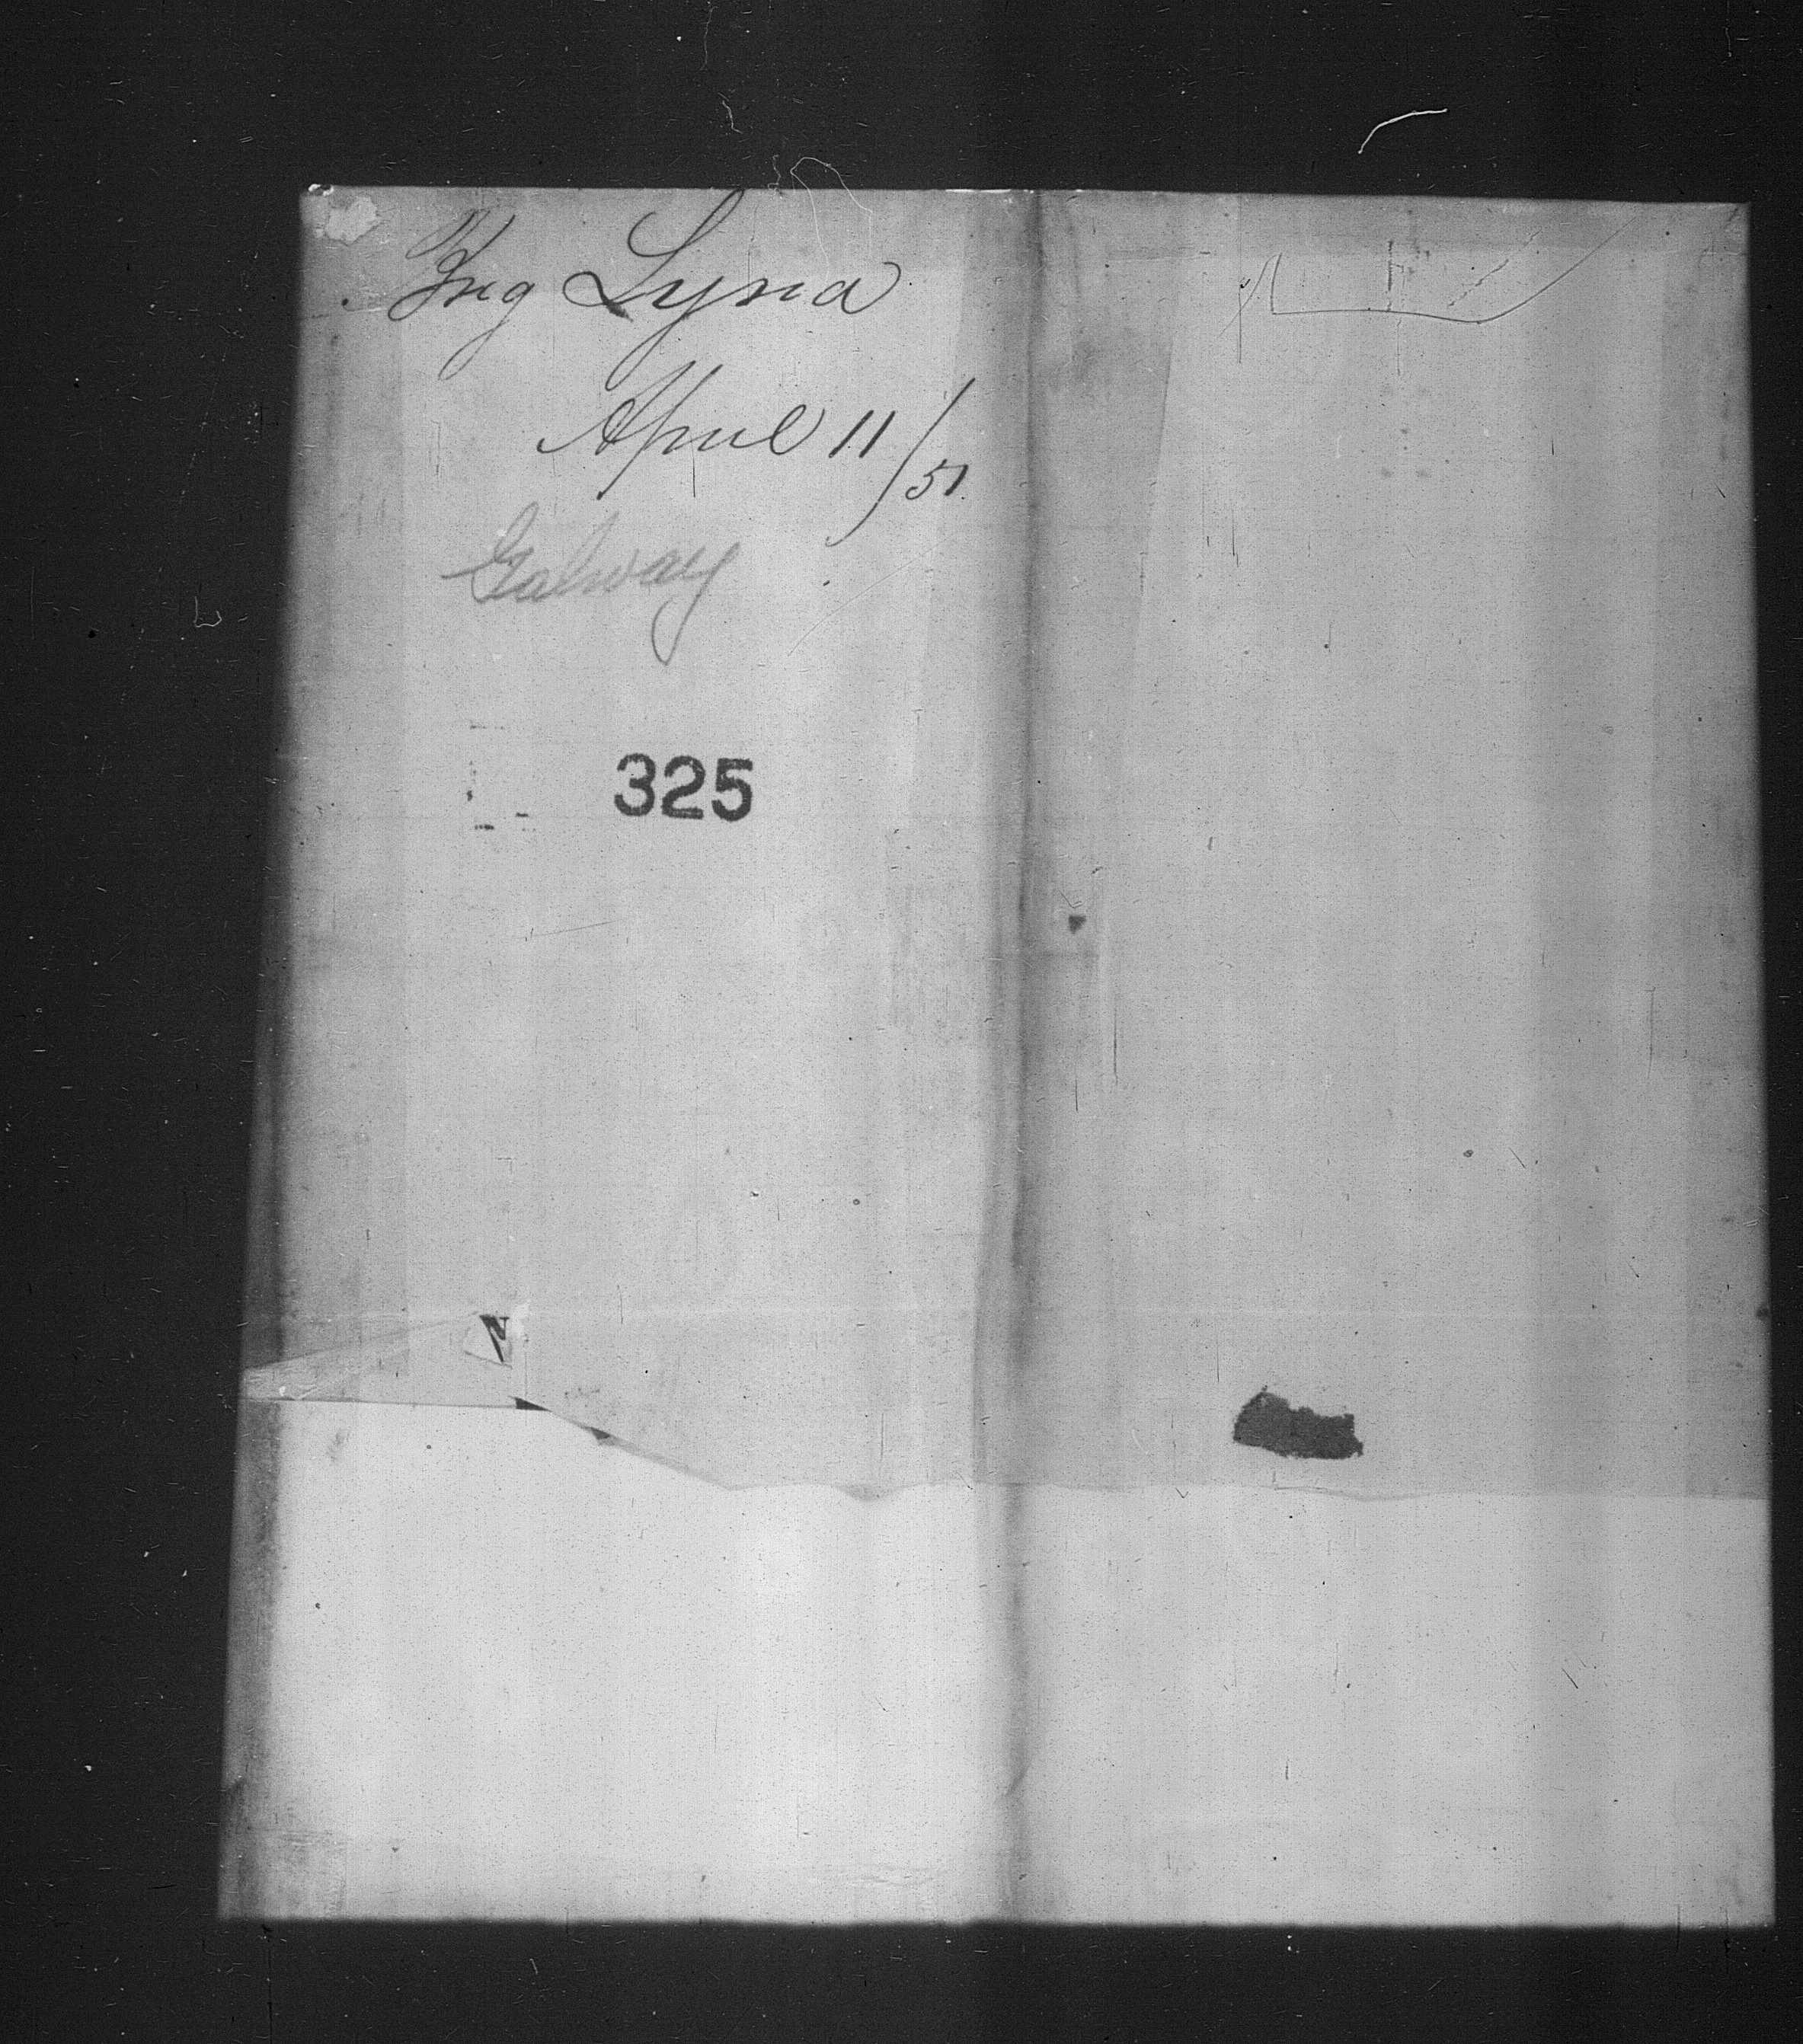 Brig Lyna
April 11/51
Galway
325
N